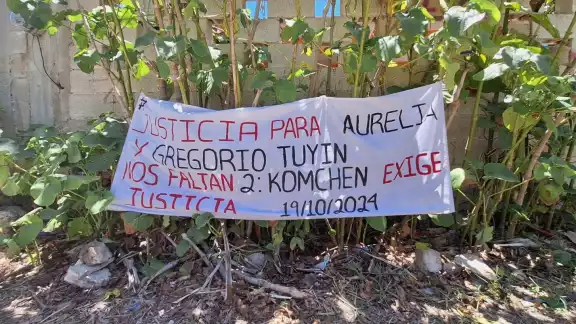 #JUSTICIA PARA AURELIA
Y GREGORIO TUYIN
NOS FALTAN 2: KOMCHEN EXIGE
JUSTICIA 19/10/2024